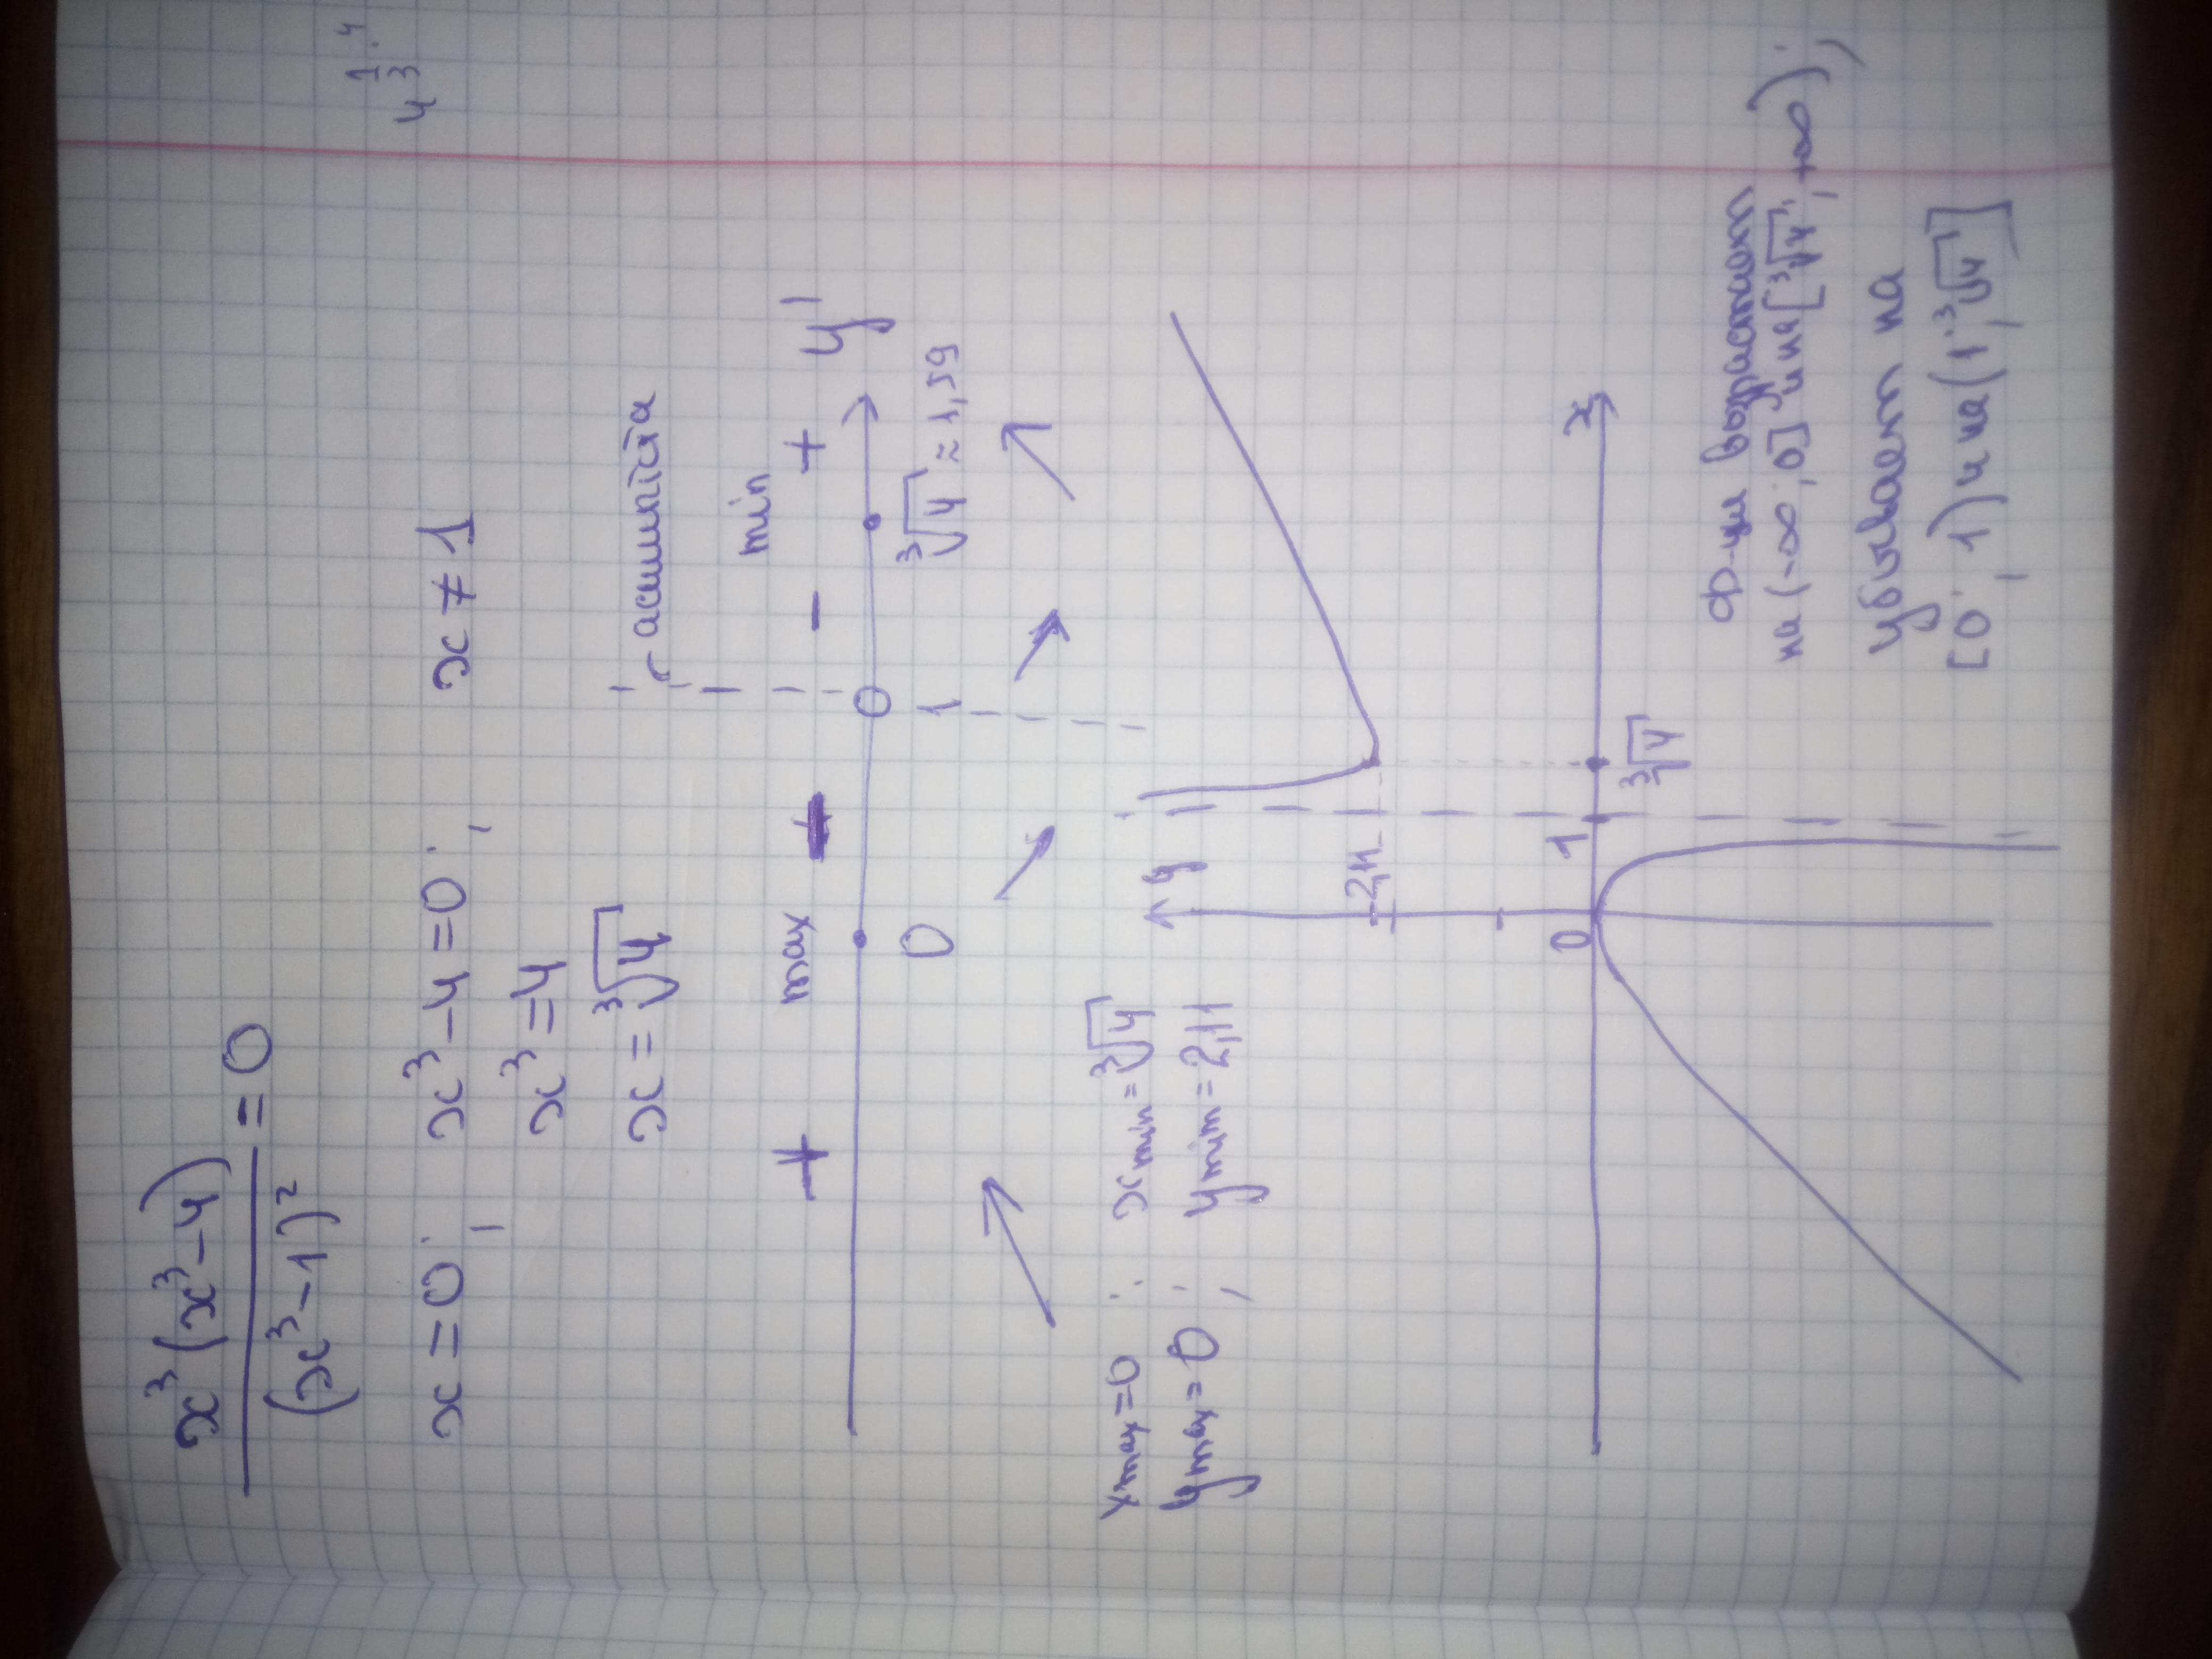 x³(x³-4)
(x³-1)²
=0
x=0; x³-4=0; x≠1
x³=4
x=³√4
асимптота
max min
+ - - + y'
0 1 ³√4 ≈ 1,59
xmax=0; xmin=³√4
ymax=0; ymin=2,11
y
2,11
0 1 ³√4 x
ф-ция возрастает
на (-∞;0] и на [³√4; +∞);
убывает на
[0; 1) и на (1; ³√4]